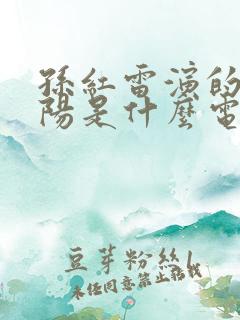 孫紅雷演的
陽是什麼電
豆芽粉絲1
未经同意禁止转载